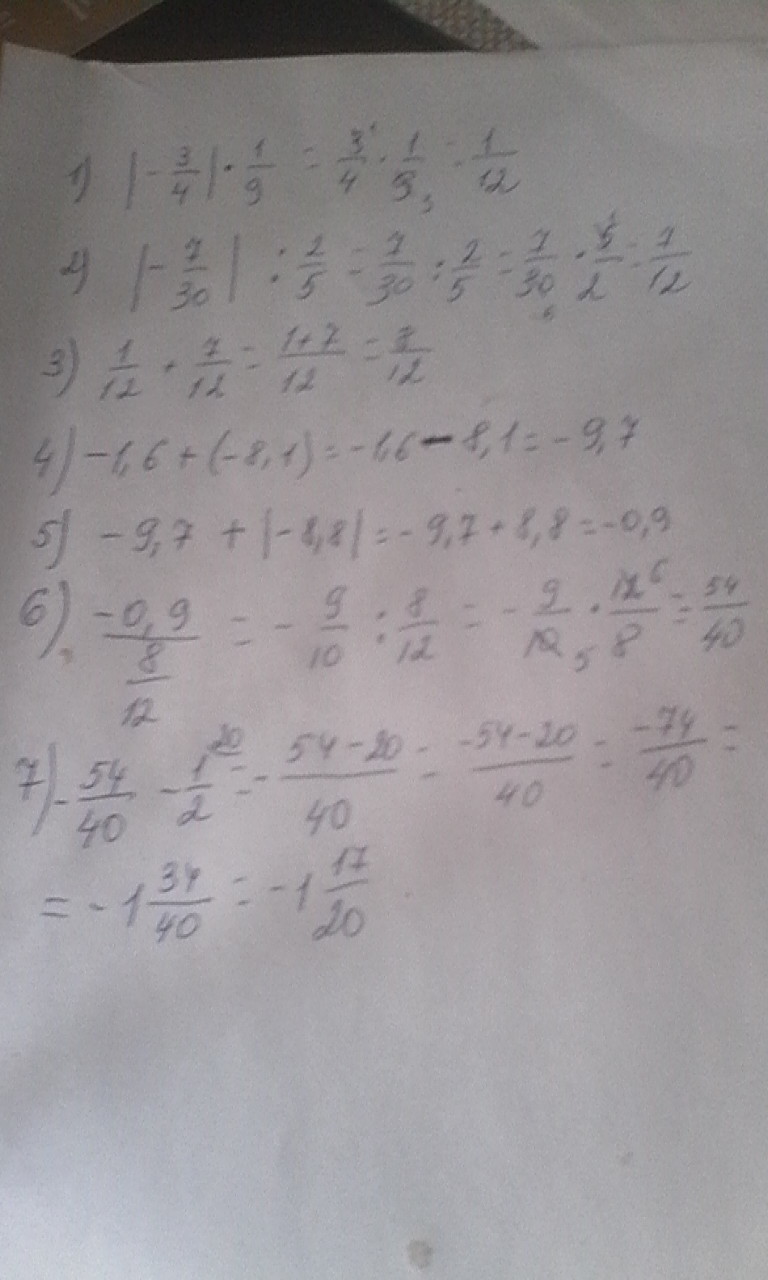 1) |-3/4| · 1/9 = 3/4 · 1/9 = 1/12
2) |-7/30| : 2/5 = 7/30 : 2/5 = 7/30 · 5/2 = 7/12
3) 1/12 + 7/12 = 1+7/12 = 8/12
4) -1,6 + (-8,1) = -1,6 - 8,1 = -9,7
5) -9,7 + |-8,8| = -9,7 + 8,8 = -0,9
6) -0,9/8/12 = -9/10 : 8/12 = -9/10 5 · 12 6/8 = 54/40
7) -54/40 - 1/2 20 = -54-20/40 = -54-20/40 = -74/40 =
= -1 34/40 = -1 17/20